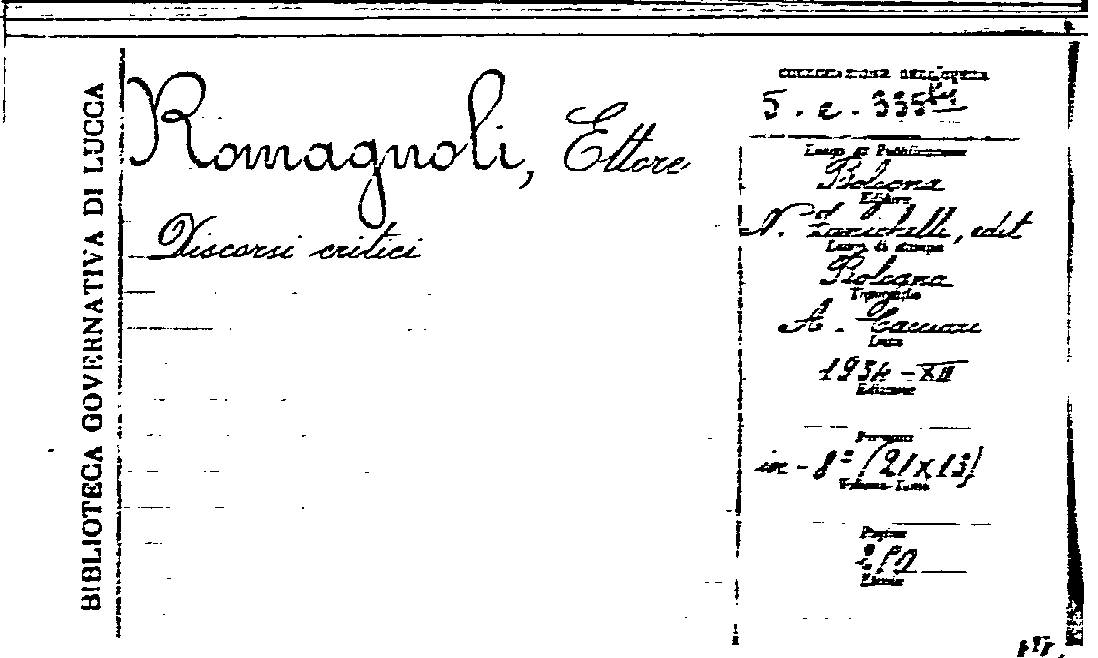 BIBLIOTECA GOVERNATIVA DI LUCCA
Romagnoli, Ettore
Discorsi critici
COLLOCAZIONE DELL'OPERA
5. e. 335
Luogo di Pubblicazione
Bologna
Editore
N. Zanichelli, edit
Luogo di stampa
Bologna
Tipografo
A. Cacciari
Data
1934-XII
Edizione
Formato
in-8º (21x13)
Volume-Tomo
Pagine